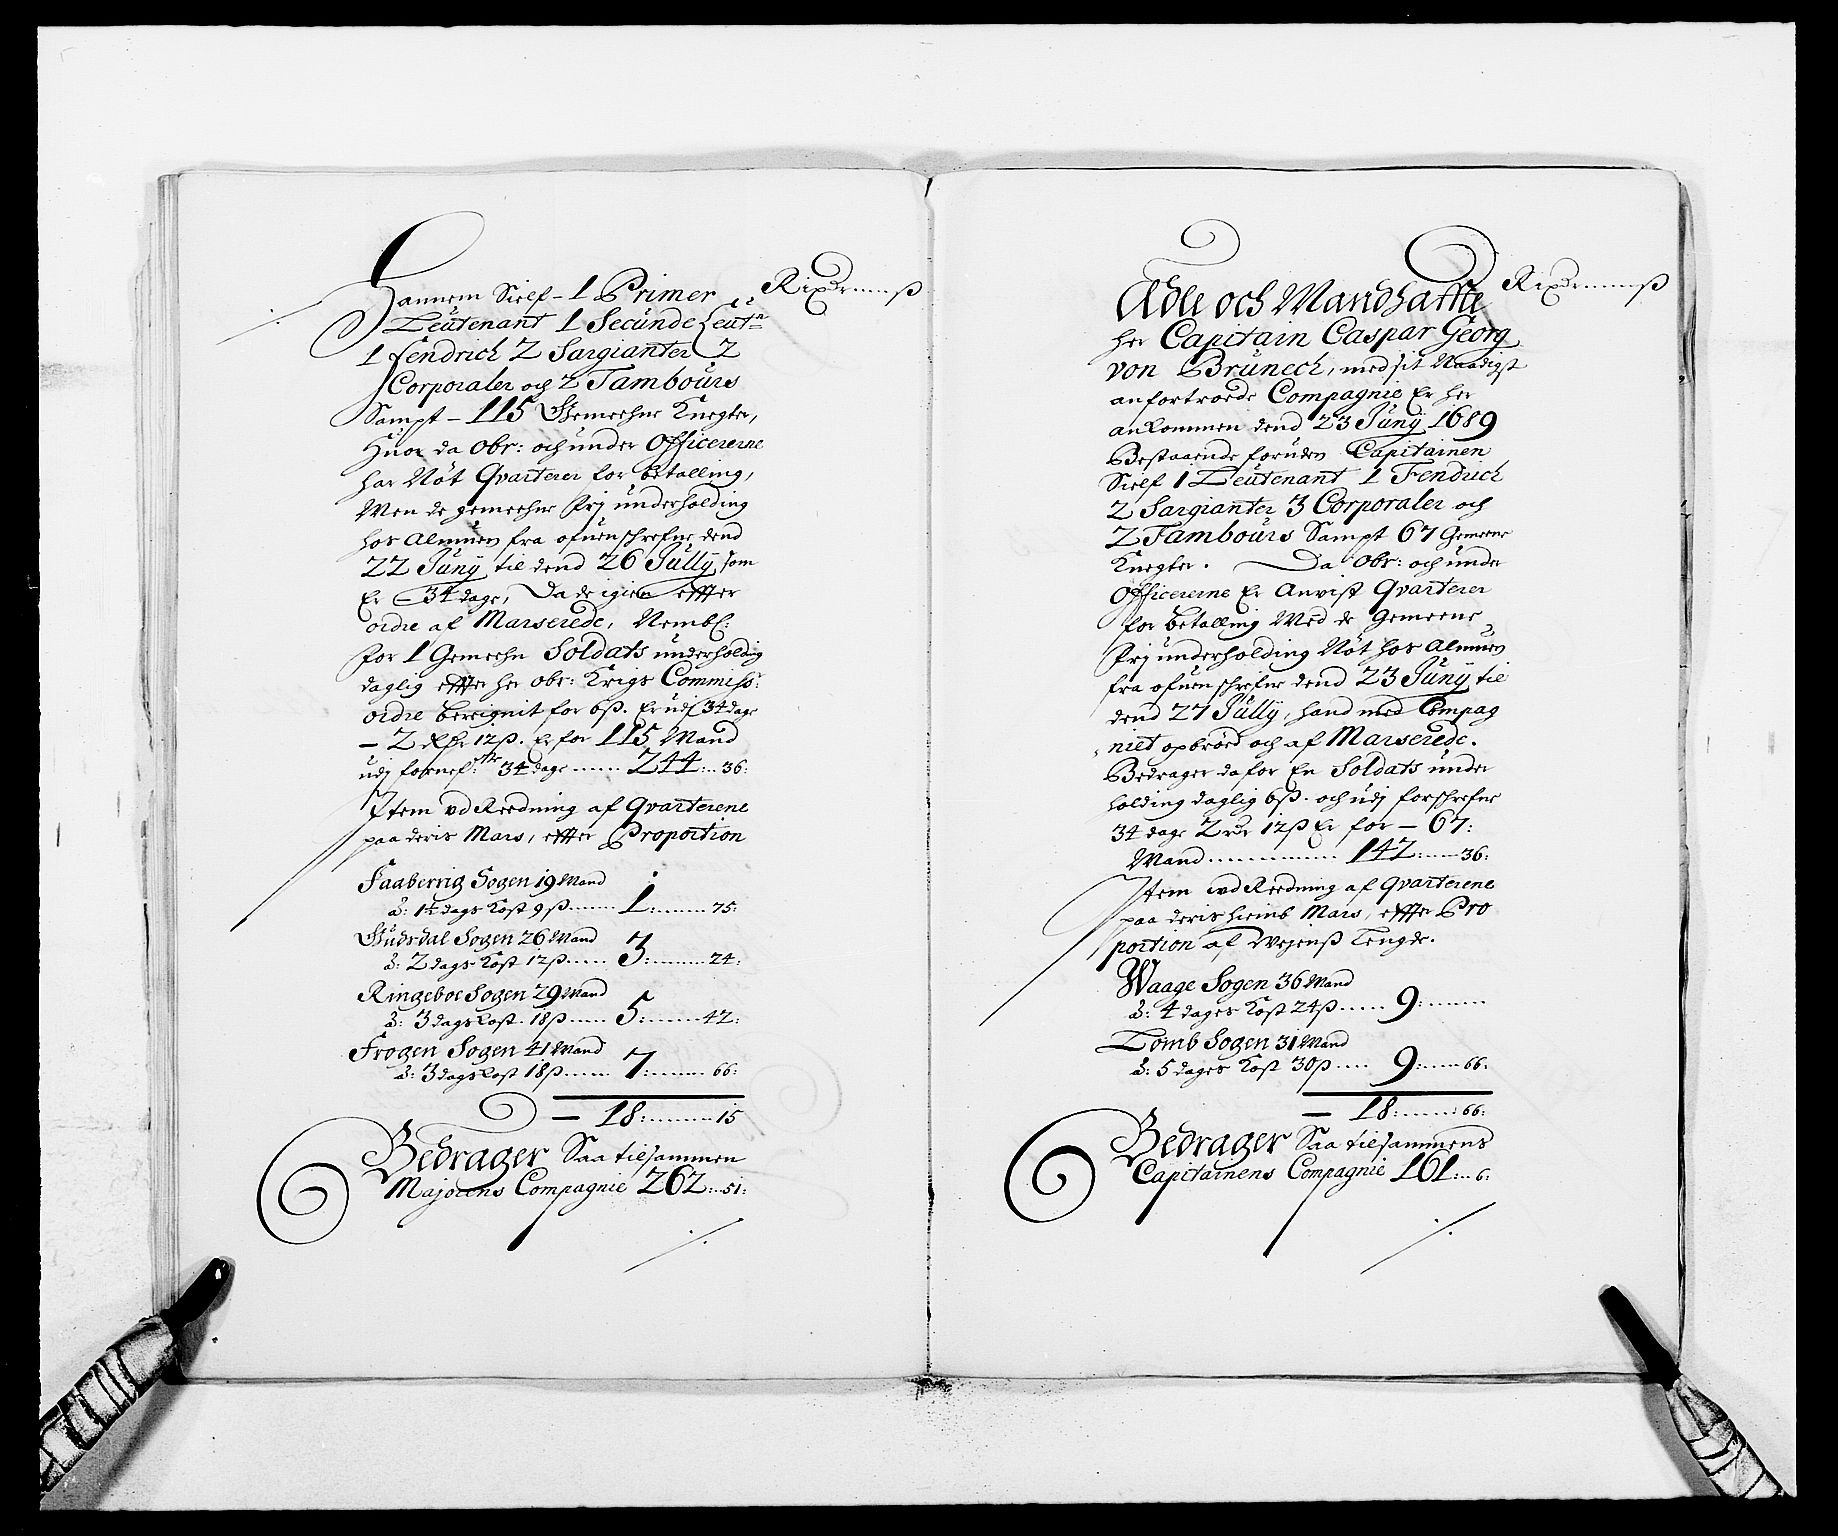 Rixdr ...... ß
Hannem Sielf - 1 Primer
Leutenant 1 Secunde Leutn
1 Fendrich 2 Sargianter 2
Corporaler och 2 Tambours
Sampt - 115 Gemeehne Knegter,
Huor da Obr: och under Officererne
har Nöt Qvarterer for betalling,
Men de gemeehne frj underholding
hos Almuen fra ofuenschrefne dend
22 Junij til dend 26 Jullj, som
Er 34 dage, Da de igien effter
ordre af Marserede, Nembl:
for 1 Gemeehn Soldats underholding
daglig effter her obr: Krigs Commiss:
ordre bereignit for 6ß. Er udj 34 dage
- 2 Rdr 12ß. Er for 115 Mand
udj fornefnte 34 dage ...... 244: .. 36:
Item ved Reedning af Qvarterene
paa deris Mars, effter Proportion
Faaberrig Sogen 19 Mand
à: 1½ dags kost 9ß ...... 1: ...... 75:
Gudsdal Sogen 26 Mand
à: 2 dags Kost 12ß ...... 3: ...... 24:
Ringeboe Sogen 29 Mand
à: 3 dags kost 18ß ...... 5: ...... 42:
Frogen Sogen 41 Mand
à: 3 dags kost 18ß ...... 7: ...... 66:
- 18: ...... 15
Bedrager Saa tilsammen
Majorens Compagnie 262: .. 51:
Rixdr ...... ß
Adle och Mandhaffte
her Capitain Caspar Georg
von Bruneck, med sit Naadigst
anfortroede Compagnie Er her
ankommen dend 23 Junij 1689
Bestaaende foruden Capitainen
Sielf 1 Leutenant 1 Fendrich
2 Sargianter 3 Corporaler och
2 Tambours Sampt 67 Gemeene
Knegter. Da Obr: och under
Officererne Er Anvist Qvarterer
for betalling Med de Gemeene
frj underholding Nöt hos Almuen
fra ofuenschrefne dend 23 Junij til
dend 27 Jullj, hand med Compag
niet opbrød och af Marserede.
Bedrager da for En Soldats under
holding daglig 6ß. och udj forschrefne
34 dage 2 rdr 12ß Er for - 67:
Mand ............ 142: .... 36:
Item ved Reedning af Qvarterene
paa deris hiemb Mars, effter Pro
portion af Vejens Lengde.
Waage Sogen 36 Mand
à: 4 dages Kost 24ß ..... 9: ......
Lomb Sogen 31 Mand
à: 5 dages Kost 30ß ..... 9: ..... 66:
- 18: ...... 66:
Bedrager Saa tilsammens
Capitainens Compagnie 161: .. 6: